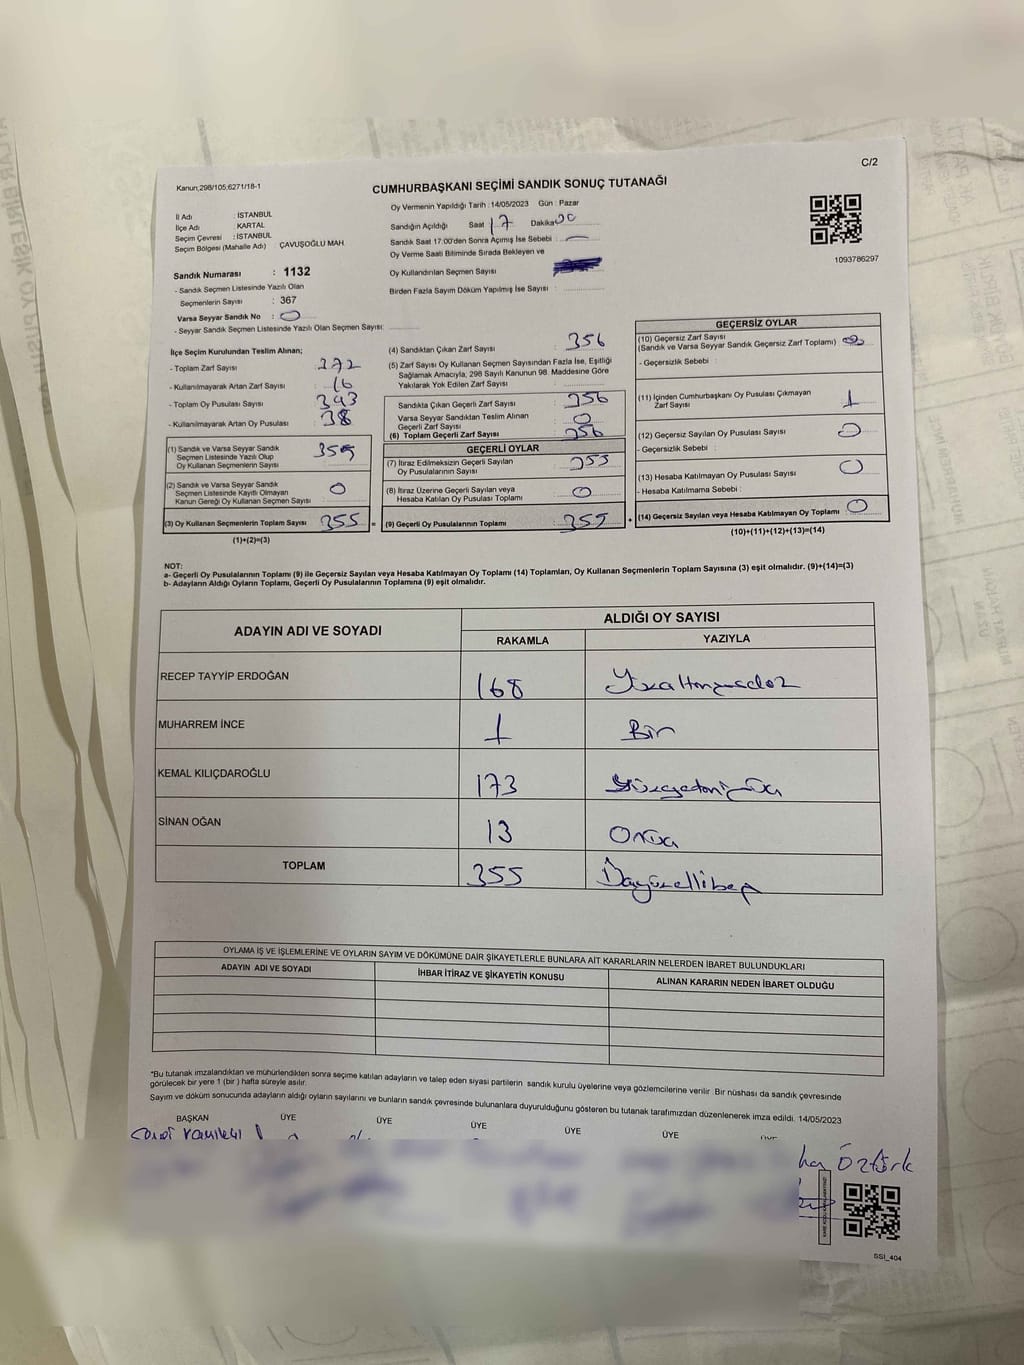 C/2
Kanun,298/105,6271/18-1
CUMHURBAŞKANI SEÇİMİ SANDIK SONUÇ TUTANAĞI
İl Adı : İSTANBUL
İlçe Adı : KARTAL
Seçim Çevresi : İSTANBUL
Seçim Bölgesi (Mahalle Adı) : ÇAVUŞOĞLU MAH.
Sandık Numarası : 1132
- Sandık Seçmen Listesinde Yazılı Olan
Seçmenlerin Sayısı : 367
Varsa Seyyar Sandık No : 0
- Seyyar Sandık Seçmen Listesinde Yazılı Olan Seçmen Sayısı:
Oy Vermenin Yapıldığı Tarih : 14/05/2023 Gün : Pazar
Sandığın Açıldığı Saat 17 Dakika 00
Sandık Saat 17:00'den Sonra Açımış İse Sebebi :
Oy Verme Saati Bitiminde Sırada Bekleyen ve
Oy Kullandırılan Seçmen Sayısı
Birden Fazla Sayım Döküm Yapılmış İse Sayısı :
1093786297
İlçe Seçim Kurulundan Teslim Alınan;
- Toplam Zarf Sayısı : 372
- Kullanılmayarak Artan Zarf Sayısı : 16
- Toplam Oy Pusulası Sayısı : 393
- Kullanılmayarak Artan Oy Pusulası : 38
(1) Sandık ve Varsa Seyyar Sandık
Seçmen Listesinde Yazılı Olup
Oy Kullanan Seçmenlerin Sayısı : 355
(2) Sandık ve Varsa Seyyar Sandık
Seçmen Listesinde Kayıtlı Olmayan
Kanun Gereği Oy Kullanan Seçmen Sayısı : 0
(3) Oy Kullanan Seçmenlerin Toplam Sayısı : 355 =
(1)+(2)=(3)
(4) Sandıktan Çıkan Zarf Sayısı : 356
(5) Zarf Sayısı Oy Kullanan Seçmen Sayısından Fazla İse, Eşitliği
Sağlamak Amacıyla, 298 Sayılı Kanunun 98. Maddesine Göre
Yakılarak Yok Edilen Zarf Sayısı :
Sandıkta Çıkan Geçerli Zarf Sayısı : 356
Varsa Seyyar Sandıktan Teslim Alınan
Geçerli Zarf Sayısı : 0
(6) Toplam Geçerli Zarf Sayısı : 356
GEÇERLİ OYLAR
(7) İtiraz Edilmeksizin Geçerli Sayılan
Oy Pusulalarının Sayısı : 355
(8) İtiraz Üzerine Geçerli Sayılan veya
Hesaba Katılan Oy Pusulası Toplamı : 0
(9) Geçerli Oy Pusulalarının Toplamı : 355 +
GEÇERSİZ OYLAR
(10) Geçersiz Zarf Sayısı
(Sandık ve Varsa Seyyar Sandık Geçersiz Zarf Toplamı) : 0
- Geçersizlik Sebebi :
(11) İçinden Cumhurbaşkanı Oy Pusulası Çıkmayan
Zarf Sayısı : 1
(12) Geçersiz Sayılan Oy Pusulası Sayısı : 0
- Geçersizlik Sebebi :
(13) Hesaba Katılmayan Oy Pusulası Sayısı : 0
- Hesaba Katılmama Sebebi :
(14) Geçersiz Sayılan veya Hesaba Katılmayan Oy Toplamı : 0
(10)+(11)+(12)+(13)=(14)
NOT:
a- Geçerli Oy Pusulalarının Toplamı (9) ile Geçersiz Sayılan veya Hesaba Katılmayan Oy Toplamı (14) Toplamları, Oy Kullanan Seçmenlerin Toplam Sayısına (3) eşit olmalıdır. (9)+(14)=(3)
b- Adayların Aldığı Oyların Toplamı, Geçerli Oy Pusulalarının Toplamına (9) eşit olmalıdır.
ADAYIN ADI VE SOYADI ALDIĞI OY SAYISI
RAKAMLA YAZIYLA
RECEP TAYYİP ERDOĞAN 168 Yüzaltmışsekiz
MUHARREM İNCE 1 Bir
KEMAL KILIÇDAROĞLU 173 Yüzyetmişüç
SİNAN OĞAN 13 Onüç
TOPLAM 355 Üçyüzellibeş
OYLAMA İŞ VE İŞLEMLERİNE VE OYLARIN SAYIM VE DÖKÜMÜNE DAİR ŞİKAYETLERLE BUNLARA AİT KARARLARIN NELERDEN İBARET BULUNDUKLARI
ADAYIN ADI VE SOYADI İHBAR İTİRAZ VE ŞİKAYETİN KONUSU ALINAN KARARIN NEDEN İBARET OLDUĞU
*Bu tutanak imzalandıktan ve mühürlendikten sonra seçime katılan adayların ve talep eden siyasi partilerin sandık kurulu üyelerine veya gözlemcilerine verilir. Bir nüshası da sandık çevresinde
görülecek bir yere 1 (bir) hafta süreyle asılır.
Sayım ve döküm sonucunda adayların aldığı oyların sayılarını ve bunların sandık çevresinde bulunanlara duyurulduğunu gösteren bu tutanak tarafımızdan düzenlenerek imza edildi. 14/05/2023
BAŞKAN ÜYE ÜYE ÜYE ÜYE ÜYE
Öztürk
SSI_404